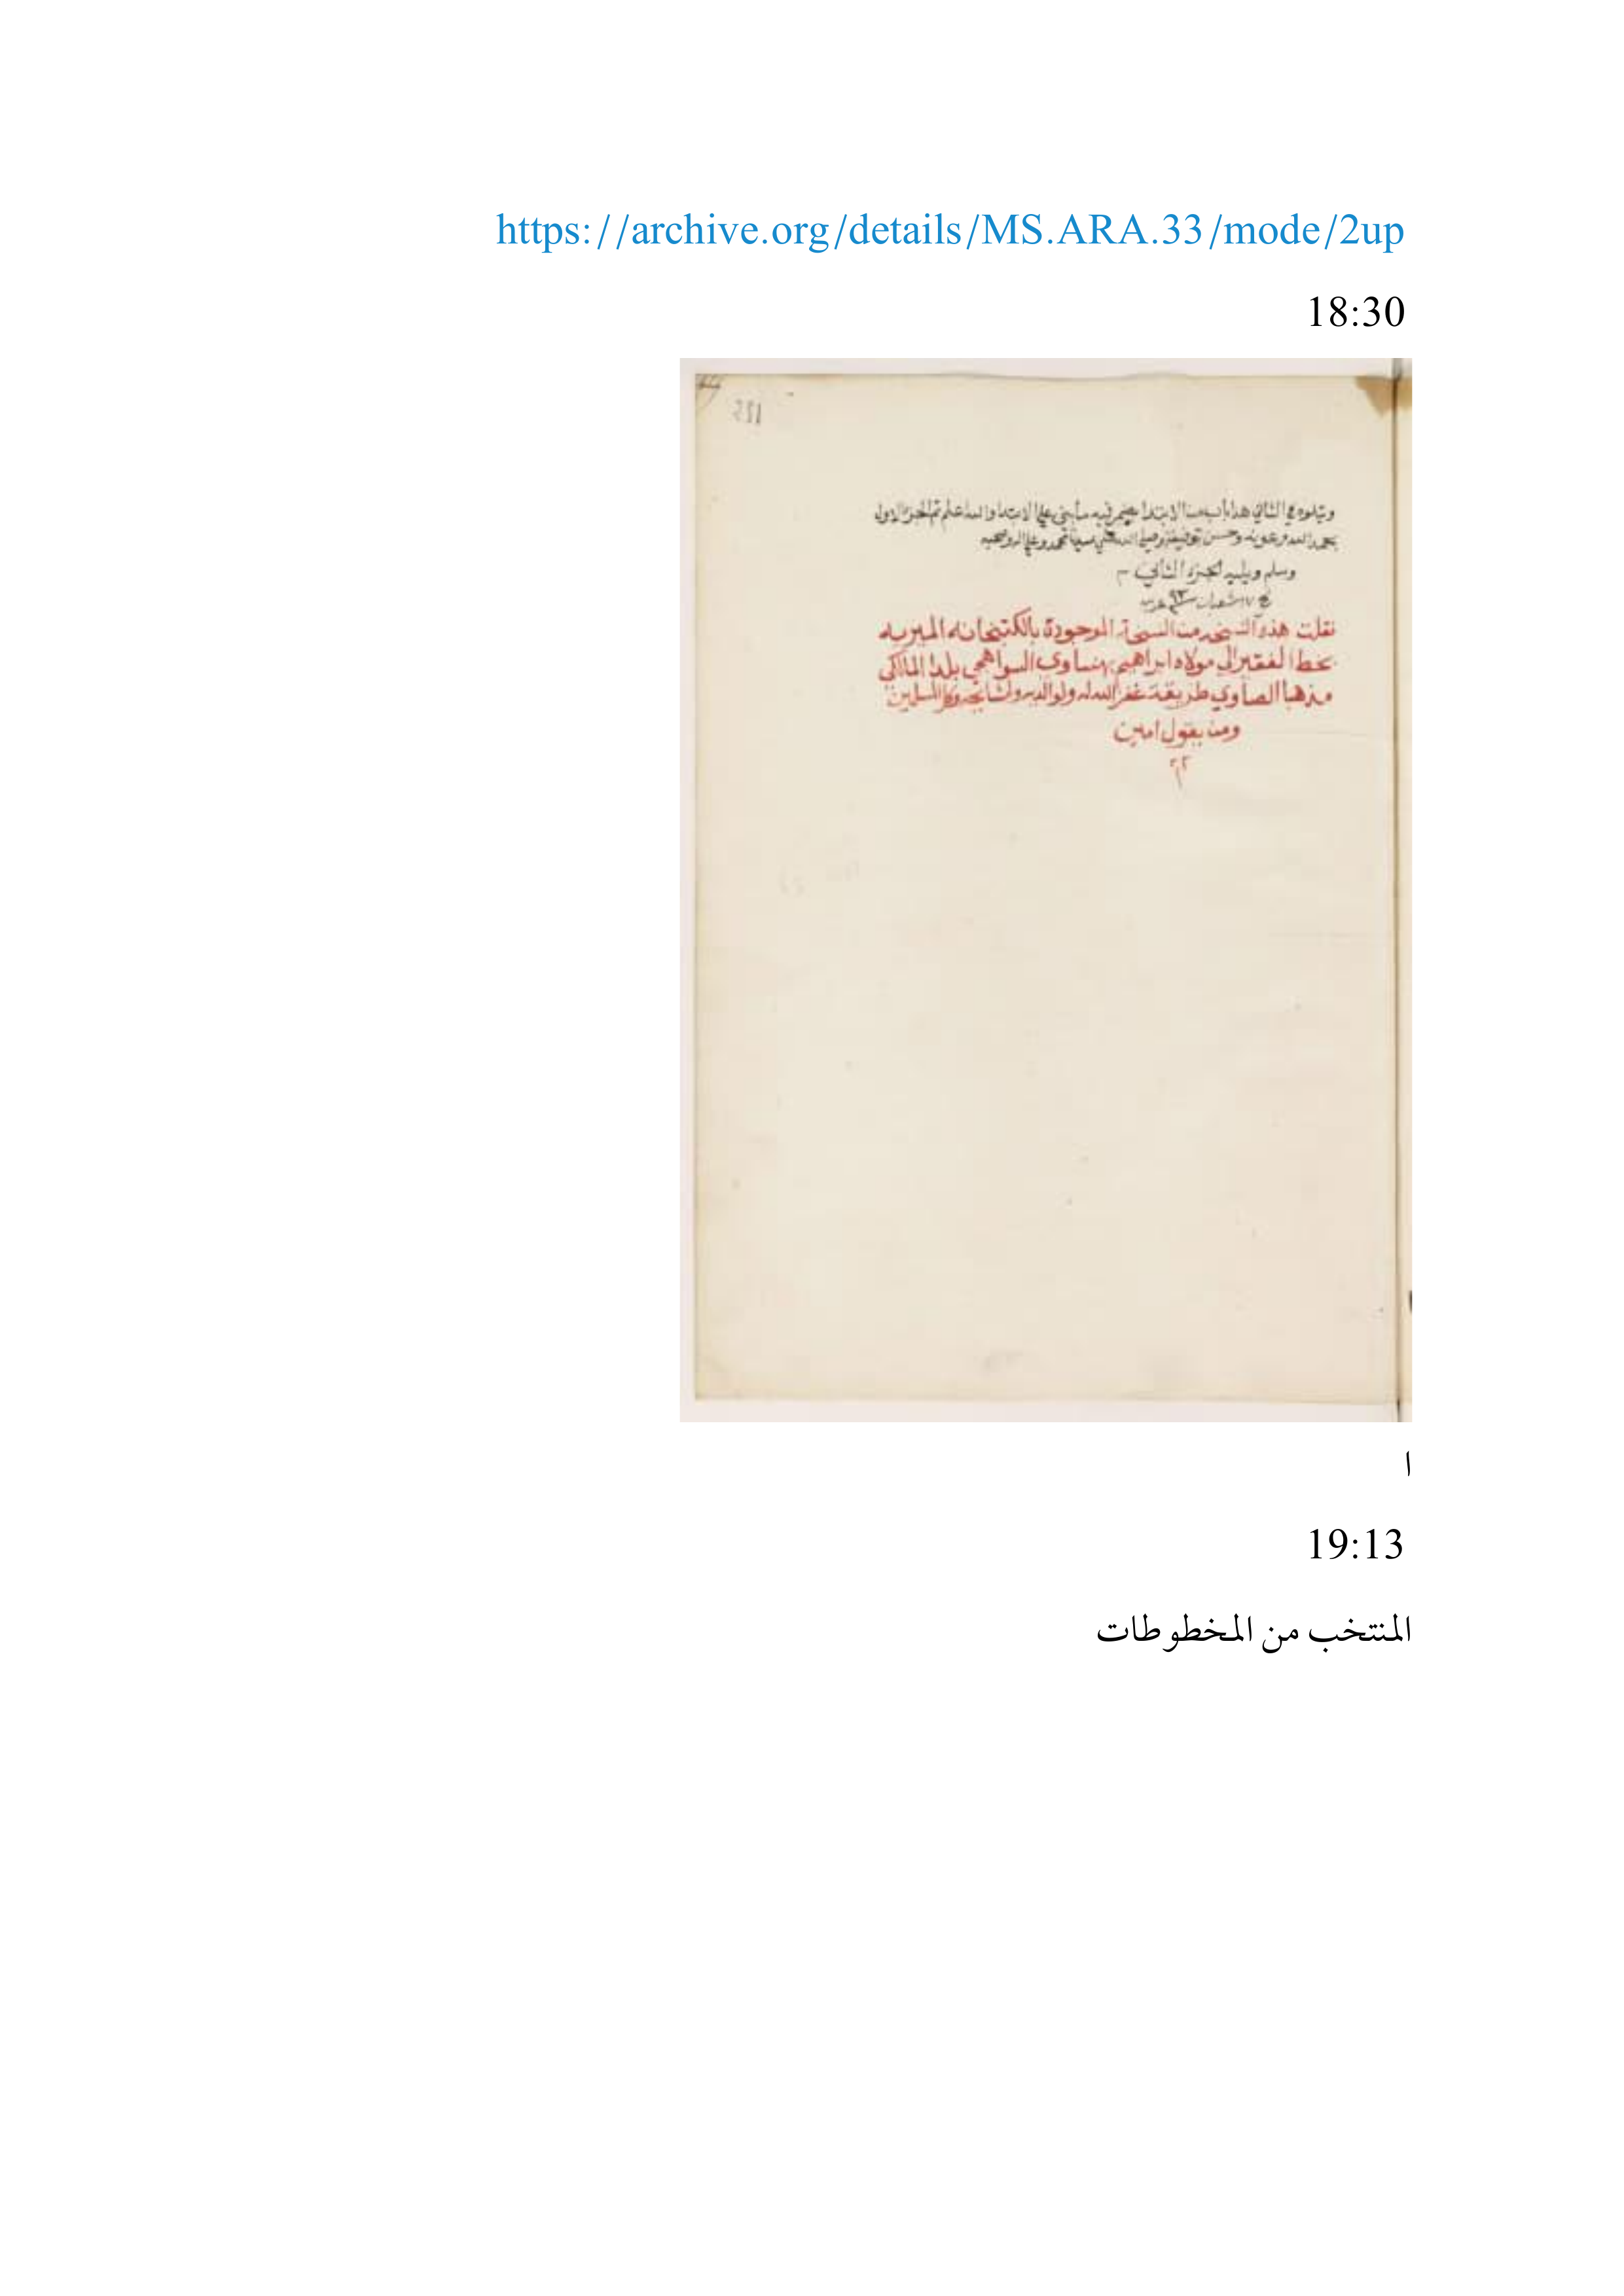 https://archive.org/details/MS.ARA.33/mode/2up
18:30
ويتلوه في الثاني هذا باب من الابتدا يضمر فيه ما بني على الابتدا والله اعلم تم الجزء الاول
بحمد الله وعونه وحسن توفيقه وصلى الله على سيدنا محمد وعلى اله وصحبه
وسلم ويليه الجزء الثاني م
في ١٧ شعبان
نقلت هذه النسخة من النسخة الموجودة بالكتبخانه الميريه
بخط الفقير الى مولاه ابراهيم بهنساوى السواهجي بلدا المالكي
مذهبا الصاوي طريقة غفر الله له ولوالديه ولمشايخه وكل المسلمين
ومن يقول امين
ا
19:13
المنتخب من المخطوطات